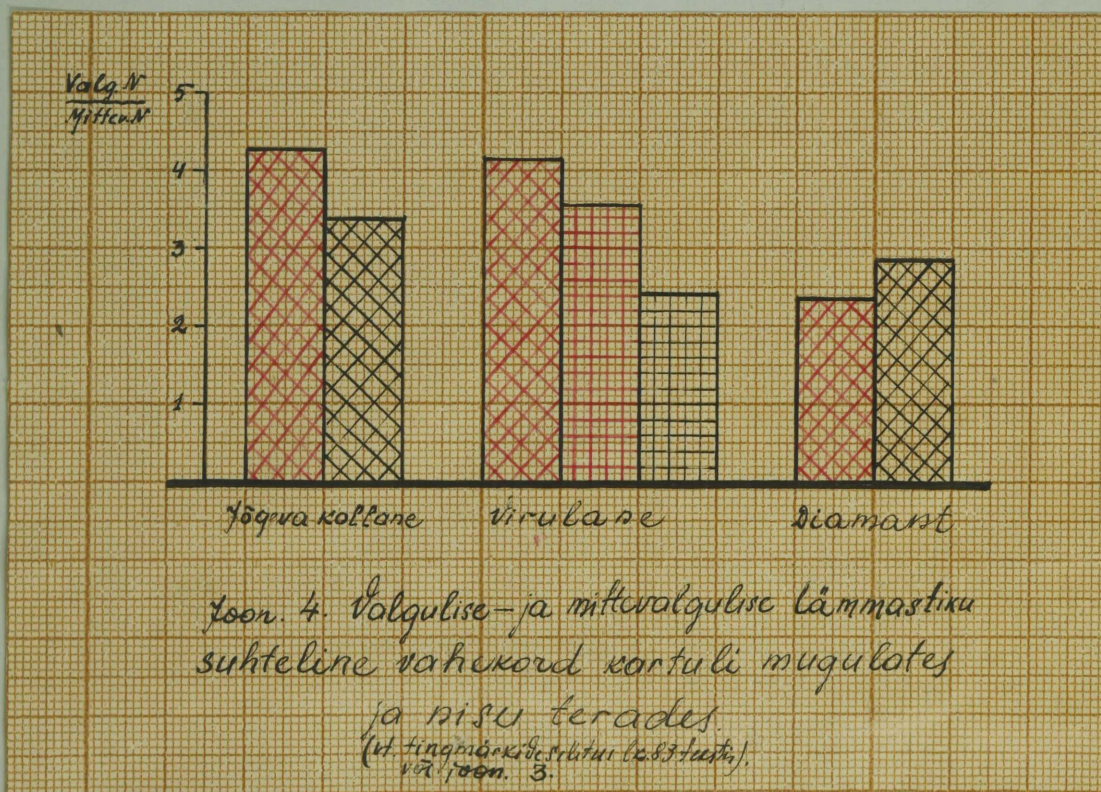 Valg. N
Mittev. N
5
4
3
2
1
Jõgeva kollane Virulane Diamant
Joon. 4. Valgulise- ja mittevalgulise lämmastiku
suhteline vahekord kartuli mugulates
ja nisu terades.
(vt. tingmärkide seletus lk. 83 tekstis).
või joon. 3.